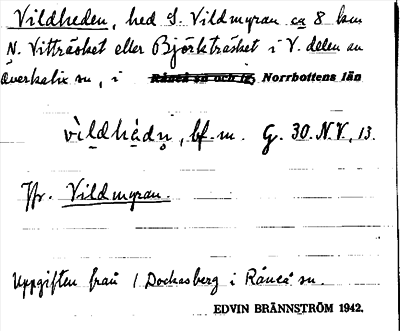 Vildheden, hed S. Vildmyran ca 8 km
N. Vitträsket eller Björkträsket i V. delen av
Överkalix sn, i Råneå sn och tg Norrbottens län
vìldhèdn̥, bf. m. G. 30. N.V., 13.
Jfr. Vildmyran.
Uppgiften från / Dockasberg i Råneå sn.
EDVIN BRÄNNSTRÖM 1942.